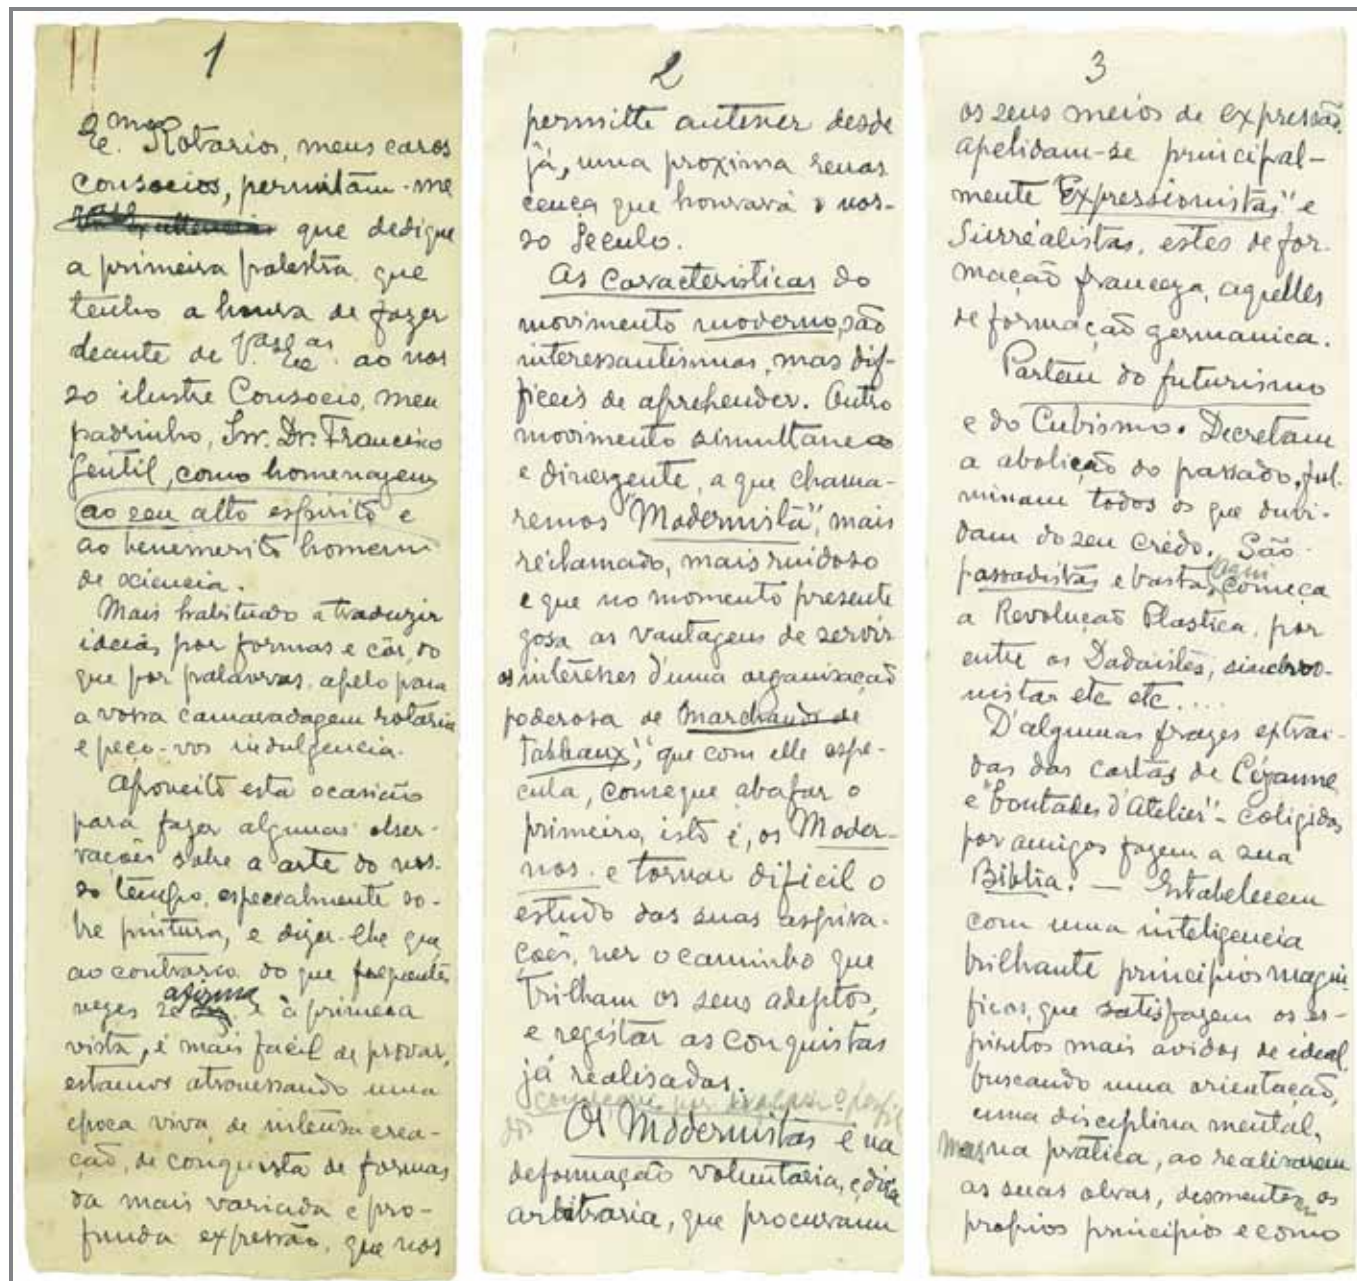 1
Exmos Rotarios, meus caros
consocios, permitam-me
que dedique
a primeira palestra que
tenho a honra de fazer
deante de V.as Ex.as ao nos
so ilustre Consocio, meu
padrinho, Snr. Dr. Francisco
Gentil, como homenagem
ao seu alto espirito e
ao benemerito homem
de sciencia.
Mais habituado a traduzir
ideias por formas e côr, do
que por palavras, apelo para
a vossa camaradagem rotaria
e peço-vos indulgencia.
Aproveito esta ocasião
para fazer algumas obser-
vações sobre a arte do nos-
so tempo, especialmente so-
bre pintura, e dizer-lhe que,
ao contrario do que frequentes
vezes se afirma e à primeira
vista, é mais facil de provar,
estamos atravessando uma
epoca viva, de intensa crea-
ção, de conquista de formas
da mais variada e pro-
funda expressão, que nos
2
permitte antever desde
já, uma proxima renas
cença que honrará o nos-
so Seculo.
As caracteristicas do
movimento moderno, são
interessantissimas, mas dif-
ficeis de aprehender. Outro
movimento simultaneo
e divergente, a que chama-
remos "Modernista", mais
reclamado, mais ruidoso
e que no momento presente
gosa as vantagens de servir
os interesses d'uma organisação
poderosa de "Marchands de
Tableaux", que com elle espe-
cula, consegue abafar o
primeiro, isto é, os Moder-
nos. e tornar dificil o
estudo das suas aspira-
ções, ver o caminho que
trilham os seus adeptos,
e registar as conquistas
já realisadas.
Os Modernistas é na
deformação voluntaria, e dirá
arbitraria, que procuram
3
os seus meios de expressão.
Apelidam-se principal-
mente "Expressionistas" e
Surréalistas, estes de for-
mação franceza, aquelles
de formação germanica.
Partem do futurismo
e do Cubismo. Decretam
a abolição do passado, ful-
minam todos os que duvi-
dam do seu crédo. São
passadistas e basta, aqui começa
a Revolução Plastica, por
entre os Dadaistes, sincbro-
nistas etc etc....
D'algumas frazes extrai-
das das cartas de Cézanne
e "boutades d'Atelier" - coligidas
por amigos fazem a sua
Biblia. — Estabelecem
com uma inteligencia
brilhante principios magni-
ficos, que satisfazem os es-
piritos mais avidos de ideal,
buscando uma orientação,
uma disciplina mental,
mas na pratica, ao realisarem
as suas obras, desmentem os
proprios principios e como